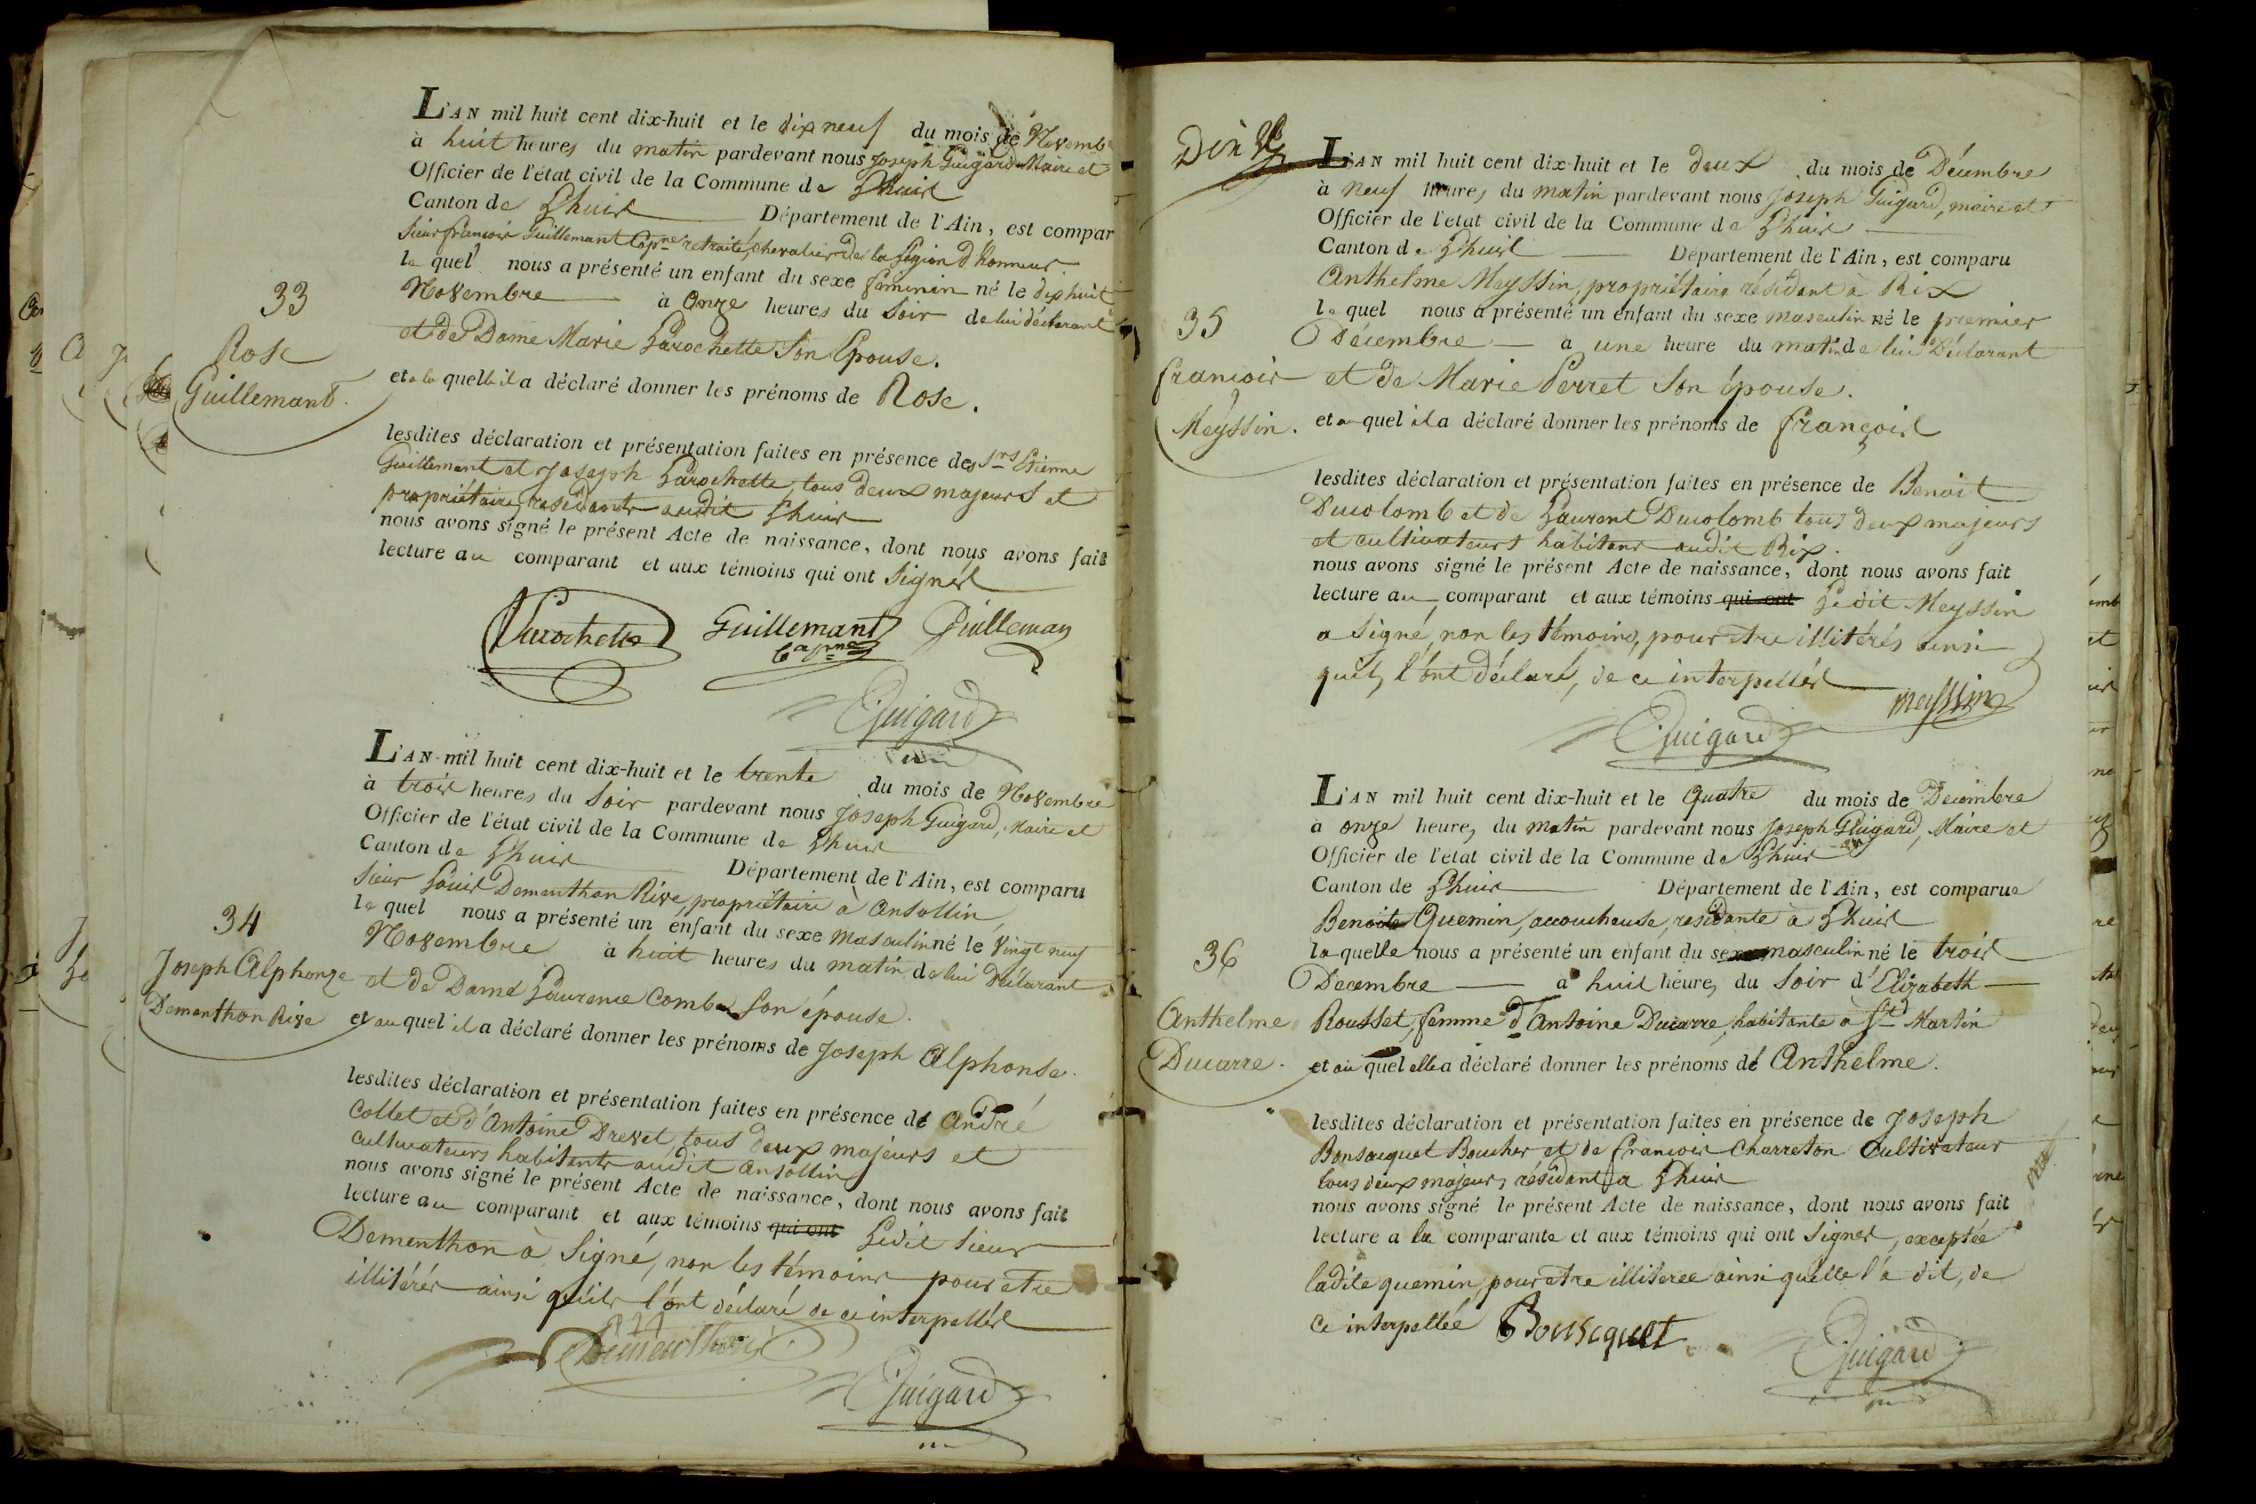 33
Rose
Guillemant.
L'AN mil huit cent dix-huit et le dix neuf du mois de Novemb
à huit heures du matin pardevant nous Joseph Guigard Maire et
Officier de l'état civil de la Commune de Lhuis
Canton de Lhuis Département de l'Ain, est compar
Sieur françois Guillemant Capne retraité, Chevalier de la Légion d'honneur
le quel nous a présenté un enfant du sexe feminin né le dix huit
Novembre à Onze heures du Soir de lui déclarant
et de Dame Marie Larochette Son Epouse.
et a la quelle il a déclaré donner les prénoms de Rose.
lesdites déclaration et présentation faites en présence des Srs Etienne
Guillemant et Joseph Larochette, tous deux majeurs et
propriétaires, residants audit Lhuis
nous avons signé le présent Acte de naissance, dont nous avons fait
lecture au comparant et aux témoins qui ont Signés
Larochette Guillemant Guilleman
Capne
Guigard
34
Joseph Alphonze
Dementhon Rive
L'AN mil huit cent dix-huit et le trente du mois de Novembre
à trois heures du Soir pardevant nous Joseph Guigard, Maire et
Officier de l'état civil de la Commune de Lhuis
Canton de Lhuis Département de l'Ain, est comparu
Sieur Louis Dementhon Rive, propriétaire à Ansollin
le quel nous a présenté un enfant du sexe masculin né le Vingt neuf
Novembre à huit heures du matin de lui déclarant
et de Dame Laurence Combe Son épouse.
et au quel il a déclaré donner les prénoms de Joseph Alphonse.
lesdites déclaration et présentation faites en présence de André
Collet et d'Antoine Drevet, tous deux majeurs et
cultivateurs habitants audit Ansollin
nous avons signé le présent Acte de naissance, dont nous avons fait
lecture au comparant et aux témoins qui ont Ledit Sieur
Dementhon à Signé, non les témoins pour etre
illitérés ainsi qu'ils l'ont déclaré de ce interpellés
Dementhon
Guigard
35
francois
Meyssin.
L'AN mil huit cent dix-huit et le deux du mois de Décembre
à neuf heures du matin pardevant nous Joseph Guigard, maire et
Officier de l'etat civil de la Commune de Lhuis
Canton de Lhuis Département de l'Ain, est comparu
Anthelme Meyssin, propriétaire résidant à Rix
le quel nous a présenté un enfant du sexe masculin né le premier
Décembre à une heure du matin de lui Déclarant
et de Marie Perret Son épouse.
et au quel il a déclaré donner les prénoms de françois
lesdites déclaration et présentation faites en présence de Benoit
Ducolomb et de Laurent Ducolomb tous deux majeurs
et cultivateurs habitans audit Rix.
nous avons signé le présent Acte de naissance, dont nous avons fait
lecture au comparant et aux témoins qui ont Ledit Meyssin
a Signé, non les témoins, pour etre illitérés ainsi
quils l'ont déclaré, de ce interpellés
meyssin
Guigard
36
Anthelme
Ducarre.
L'AN mil huit cent dix-huit et le quatre du mois de Decembre
à onze heures du matin pardevant nous Joseph Guigard, Maire et
Officier de l'état civil de la Commune de Lhuis
Canton de Lhuis Département de l'Ain, est comparue
Benoite Quemin, accoucheuse, residante à Lhuis
la quelle nous a présenté un enfant du sexe masculin né le trois
Decembre à huit heures du Soir d'Elizabeth
Rousset, femme d'Antoine Ducarre, habitante à St Martin
et au quel elle a déclaré donner les prénoms de Anthelme.
lesdites déclaration et présentation faites en présence de Joseph
Bonsacquet Boucher et de francois Charreton Cultivateur
tous deux majeurs résidant a Lhuis
nous avons signé le présent Acte de naissance, dont nous avons fait
lecture a la comparante et aux témoins qui ont Signer, exceptée
ladite quemin, pour etre illiteree ainsi quelle l'a dit, de
ce interpellée Bouscquet
Guigard